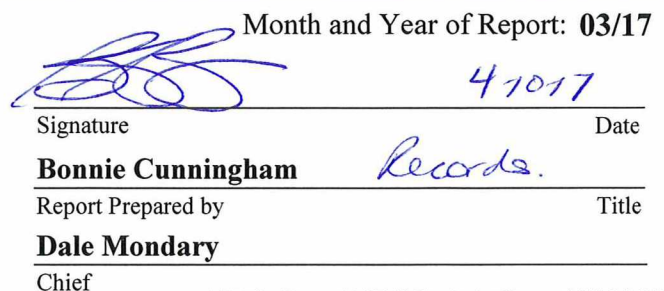 Month and Year of Report: 03/17
41017
Signature Date
Bonnie Cunningham Records.
Report Prepared by Title
Dale Mondary
Chief